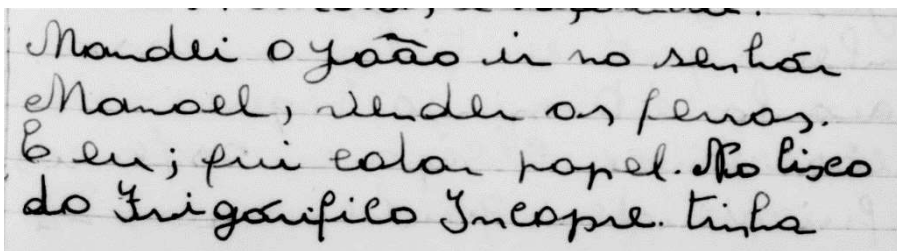 Mandei o João ir no senhór
Manoel, vender os ferros.
E eu; fui catar papel. No lixo
do Frigórifico Incapre. tinha